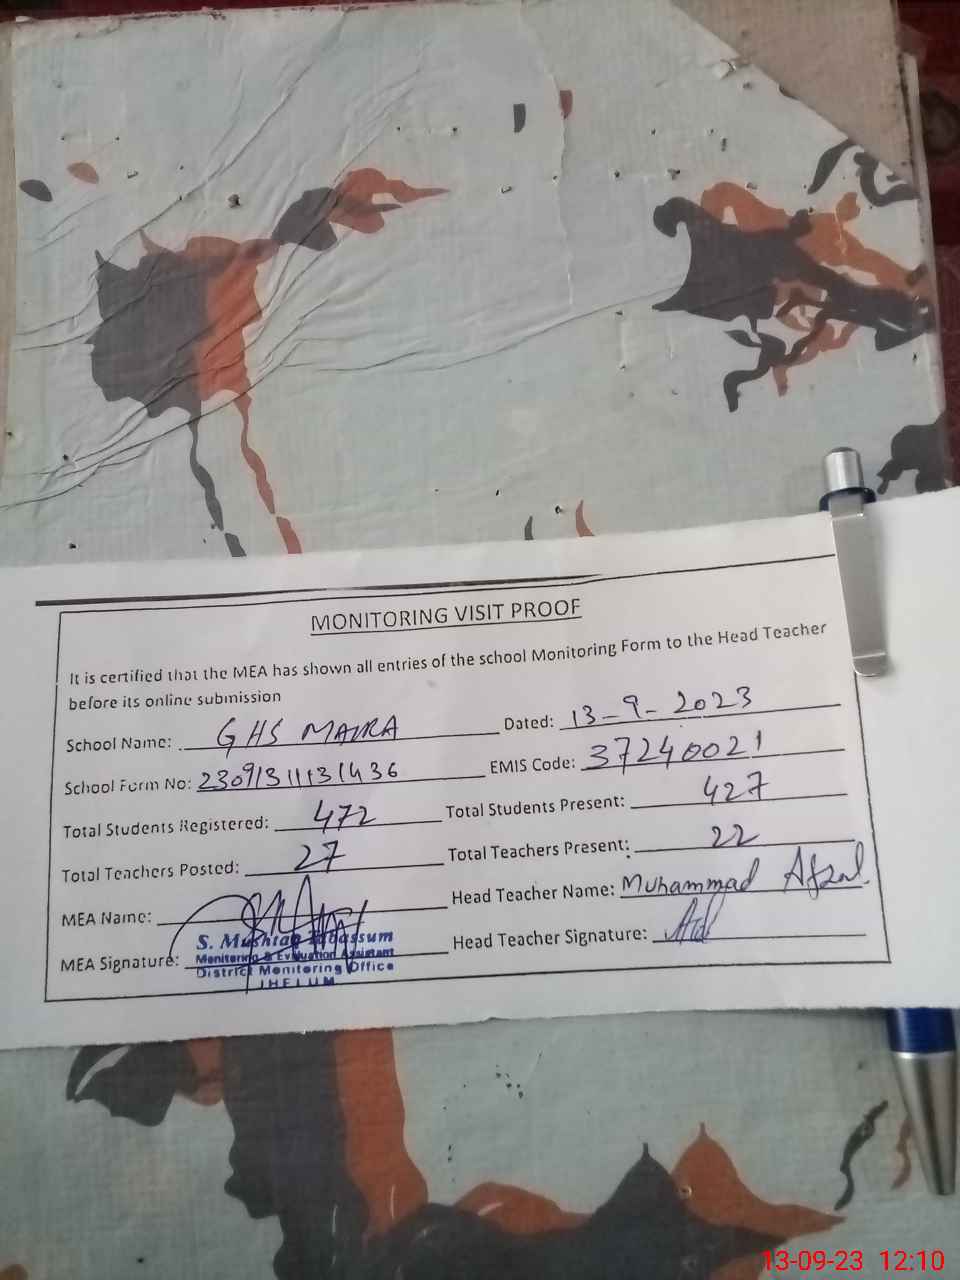 MONITORING VISIT PROOF
It is certified that the MEA has shown all entries of the school Monitoring Form to the Head Teacher
before its online submission
School Name: GHS MAIRA Dated: 13-9-2023
School Form No: 23091311131436 EMIS Code: 37240021
Total Students Registered: 472 Total Students Present: 427
Total Teachers Posted: 27 Total Teachers Present: 22
MEA Name: Head Teacher Name: Muhammad Afzal
MEA Signature: Head Teacher Signature:
S. Mushtaq Tabassum
Monitoring & Evaluation Assistant
District Monitoring Office
JHELUM
13-09-23 12:10